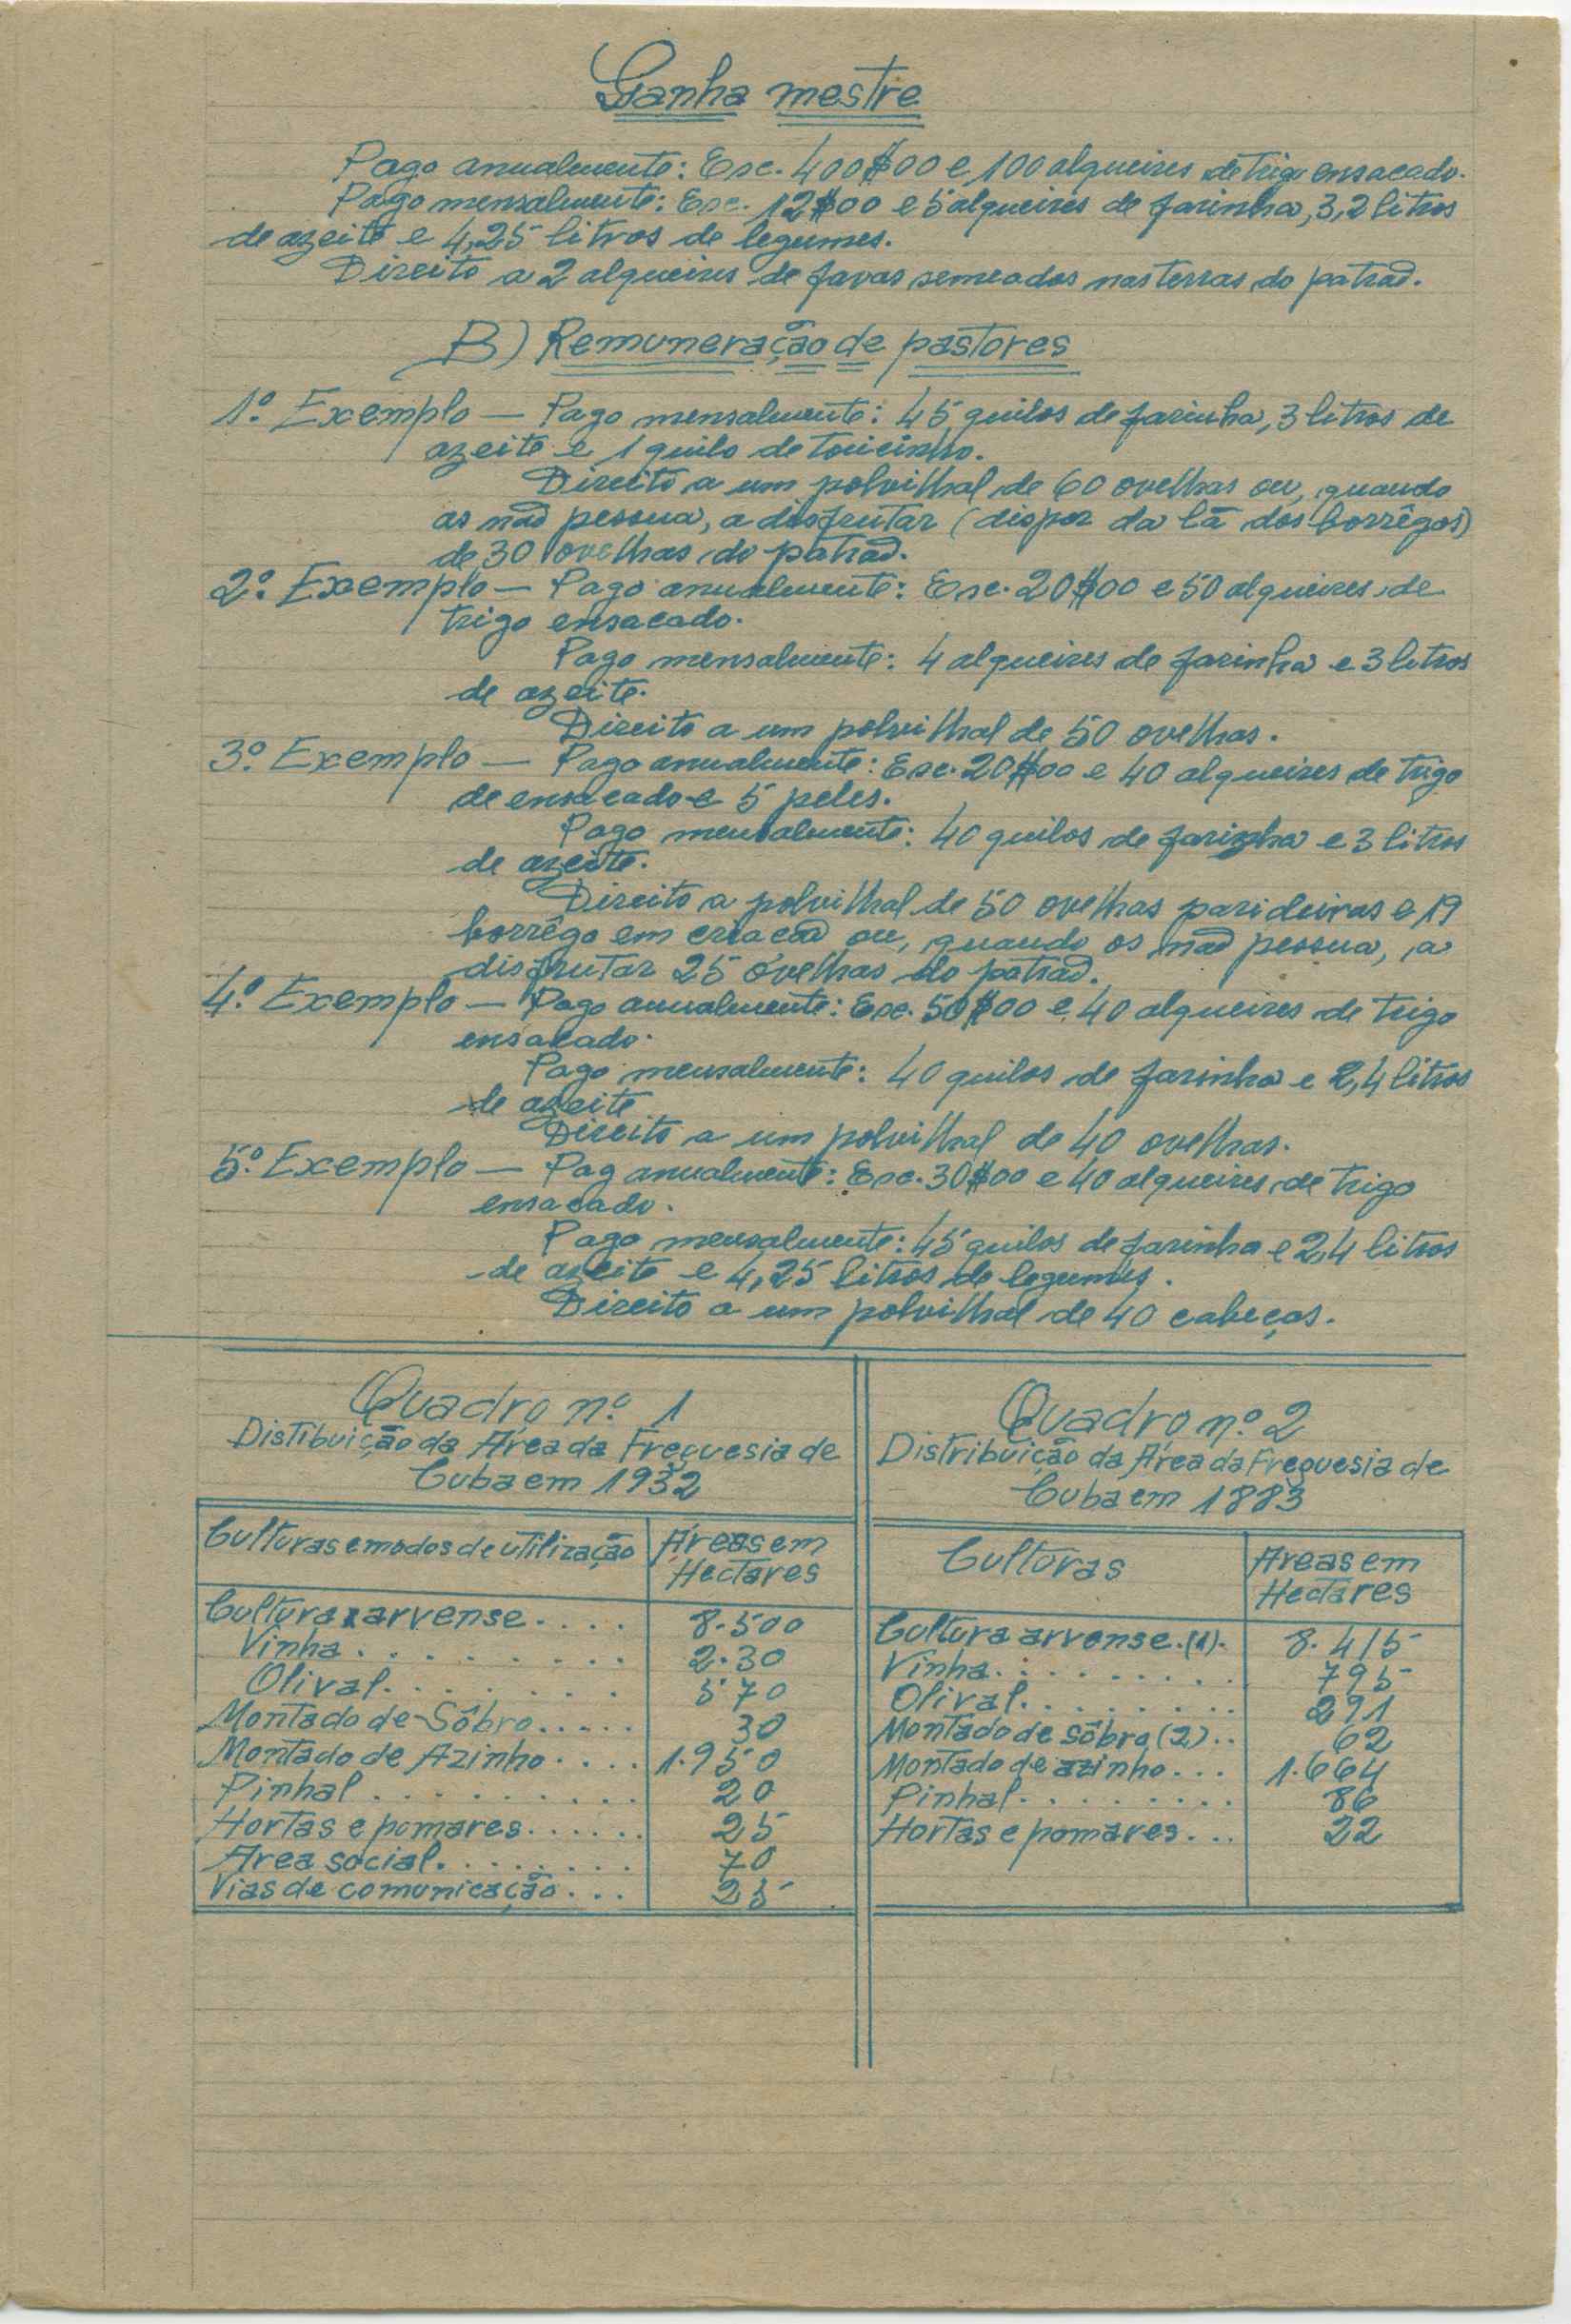 Ganha mestre
Pago anualmente: Esc. 400$00 e 100 alqueires de trigo ensacado.
Pago mensalmente: Esc. 12$00 e 5 alqueires de farinha, 3,2 litros
de azeite e 4,25 litros de legumes.
Direito a 2 alqueires de favas semeados nas terras do patrão.
B) Remuneração de pastores
1.º Exemplo — Pago mensalmente: 45 quilos de farinha, 3 litros de
azeite e 1 quilo de toicinho.
Direito a um polvilhal de 60 ovelhas ou, quando
as não possua, a disfrutar (dispor da lã dos borrêgos)
de 30 ovelhas do patrão.
2.º Exemplo — Pago anualmente: Esc. 20$00 e 50 alqueires de
trigo ensacado.
Pago mensalmente: 4 alqueires de farinha e 3 litros
de azeite.
Direito a um polvilhal de 50 ovelhas.
3.º Exemplo — Pago anualmente: Esc. 20$00 e 40 alqueires de trigo
de ensacado e 5 peles.
Pago mensalmente: 40 quilos de farinha e 3 litros
de azeite.
Direito a polvilhal de 50 ovelhas parideiras e 19
borrêgo em criacão ou, quando os não possua, a
disfrutar 25 ovelhas do patrão.
4.º Exemplo — Pago anualmente: Esc. 50$00 e 40 alqueires de trigo
ensacado.
Pago mensalmente: 40 quilos de farinha e 2,4 litros
de azeite
Direito a um polvilhal de 40 ovelhas.
5.º Exemplo — Pag anualmente: Esc. 30$00 e 40 alqueires de trigo
ensacado.
Pago mensalmente: 45 quilos de farinha e 2,4 litros
de azeite e 4,25 litros de legumes.
Direito a um polvilhal de 40 cabeças.
Quadro n.º 1
Distibuição da Área da Freguesia de
Cuba em 1932
Culturas e modos de utilização Áreas em
Hectares
Cultura arvense.... 8.500
Vinha......... 2.30
Olival........ 570
Montado de Sôbro..... 30
Montado de Azinho.... 1.950
Pinhal.......... 20
Hortas e pomares...... 25
Area social........ 70
Vias de comunicação... 25
Quadro n.º 2
Distribuição da Área da Freguesia de
Cuba em 1883
Culturas Areas em
Hectares
Cultura arvense.(1). 8.415
Vinha......... 795
Olival........ 291
Montado de sôbro (2).. 62
Montado de azinho... 1.664
Pinhal........ 86
Hortas e pomares... 22